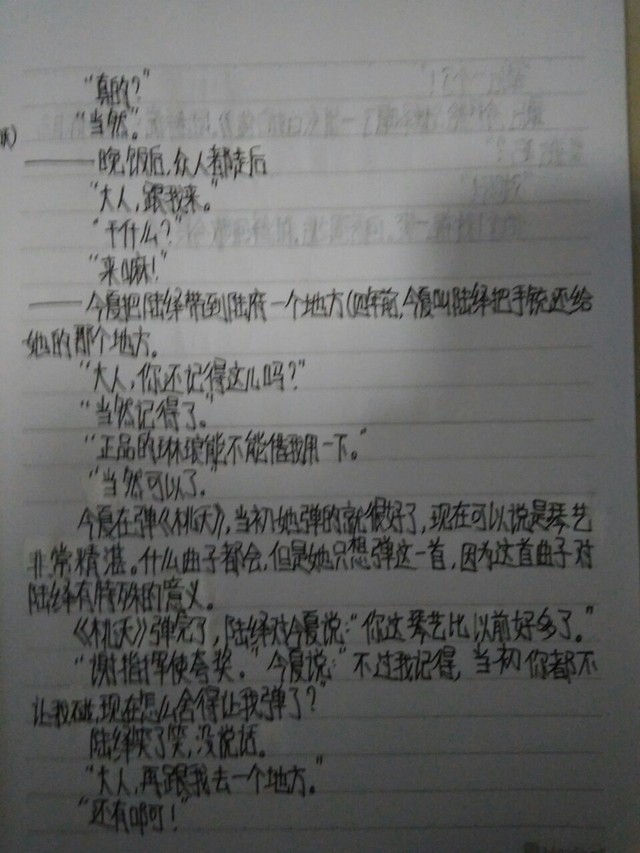 “真的？”
“当然。”
——晚饭后，众人都走后
“大人，跟我来。”
“干什么？”
“来嘛！”
——今夏把陆绎带到陆府一个地方（四年前，今夏叫陆绎把手铳还给
她的那个地方。
“大人，你还记得这儿吗？”
“当然记得了。”
“正品的琳琅能不能借我用一下。”
“当然可以了。”
今夏在弹《桃夭》，当初她弹的就很好了，现在可以说是琴艺
非常精湛。什么曲子都会，但是她只想弹这一首，因为这首曲子对
陆绎有特殊的意义。
《桃夭》弹完了，陆绎对今夏说：“你这琴艺比以前好多了。”
“谢指挥使夸奖。”今夏说：“不过我记得，当初你都不
让我碰，现在怎么舍得让我弹了？”
陆绎笑了笑，没说话。
“大人，再跟我去一个地方。”
“还有啊！”